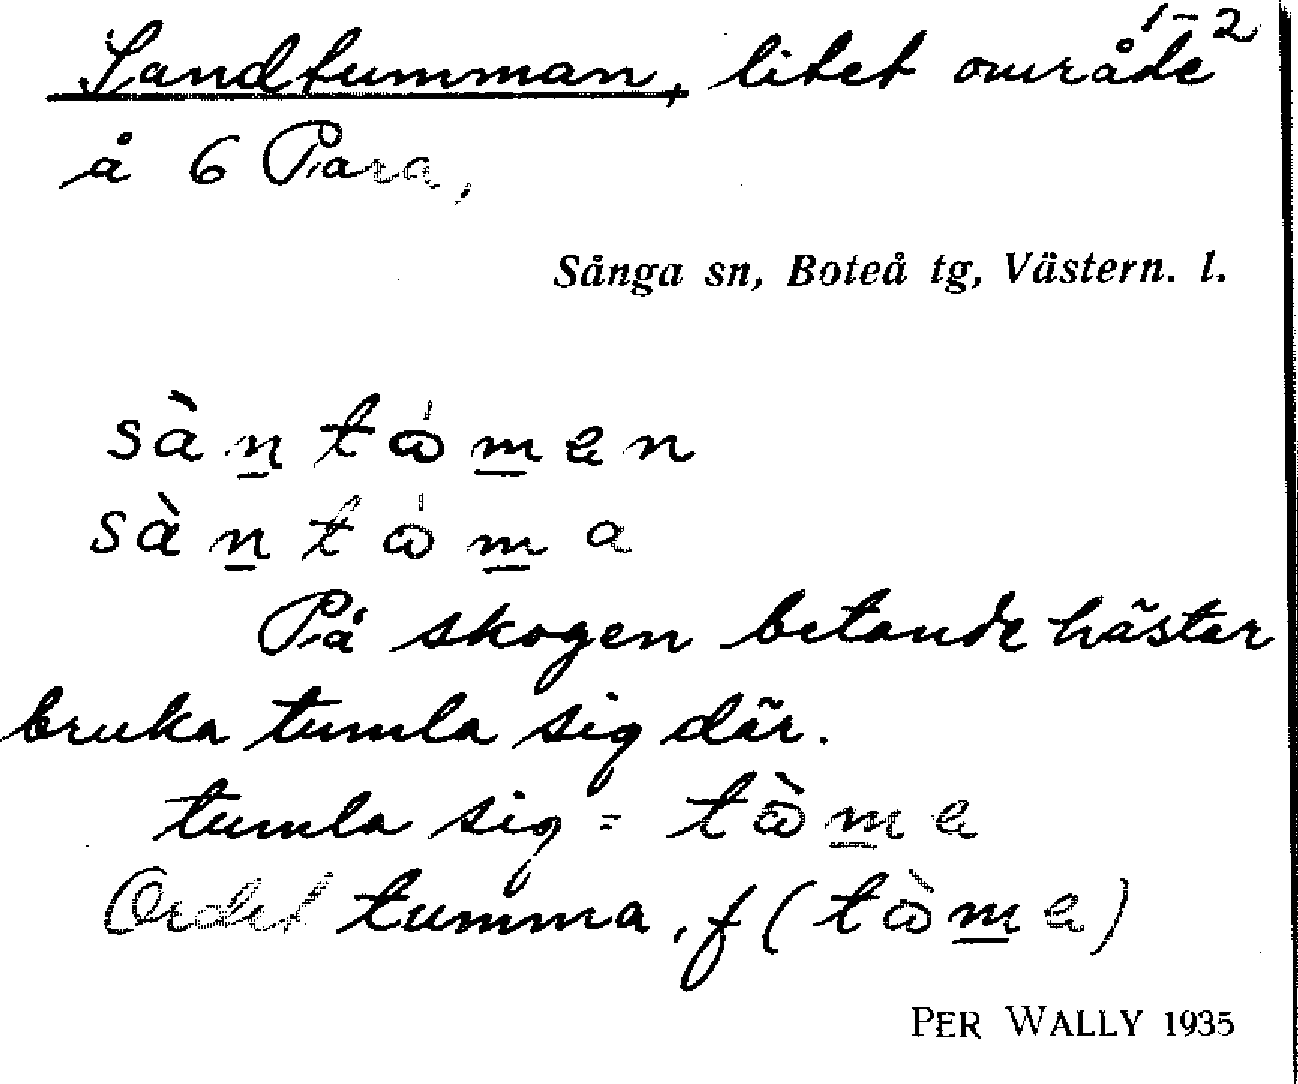 1-2
Sandtumman, litet område
å 6 Para,
Sånga sn, Boteå tg, Västern. l.
sàn̲ tȯ́m̲en
sàn̲ tȯ́m̲a
På skogen betande hästar
bruka tumla sig där.
tumla sig = tòm̲e
Ordet tumma, f (tòm̲e)
PER WALLY 1935